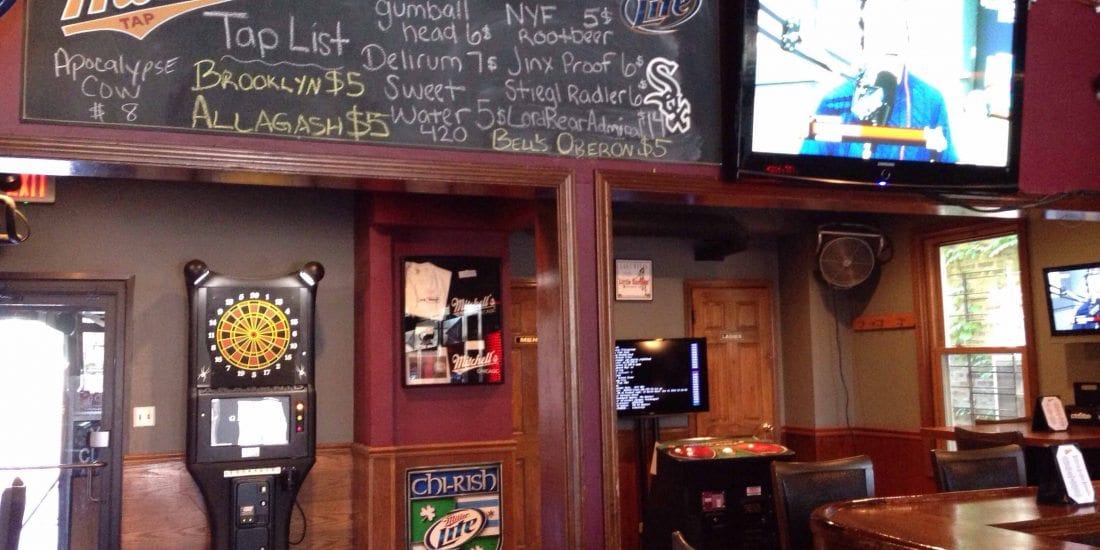 Miller
TAP
Tap List
Apocalypse
Cow
$ 8
Brooklyn $5
Allagash $5
gumball
head 6$
Delirum 7$
Sweet
Water 5$
420
NYF 5$
Rootbeer
Jinx Proof 6$
Stiegl Radler 6$
Lord Rear Admiral $14
Bell's Oberon $5
Lite
Sox
SAMSUNG
EXIT
Mitchell's
Mitchell's
CHICAGO
MEN
LADIES
CHI-RISH
Miller
Lite